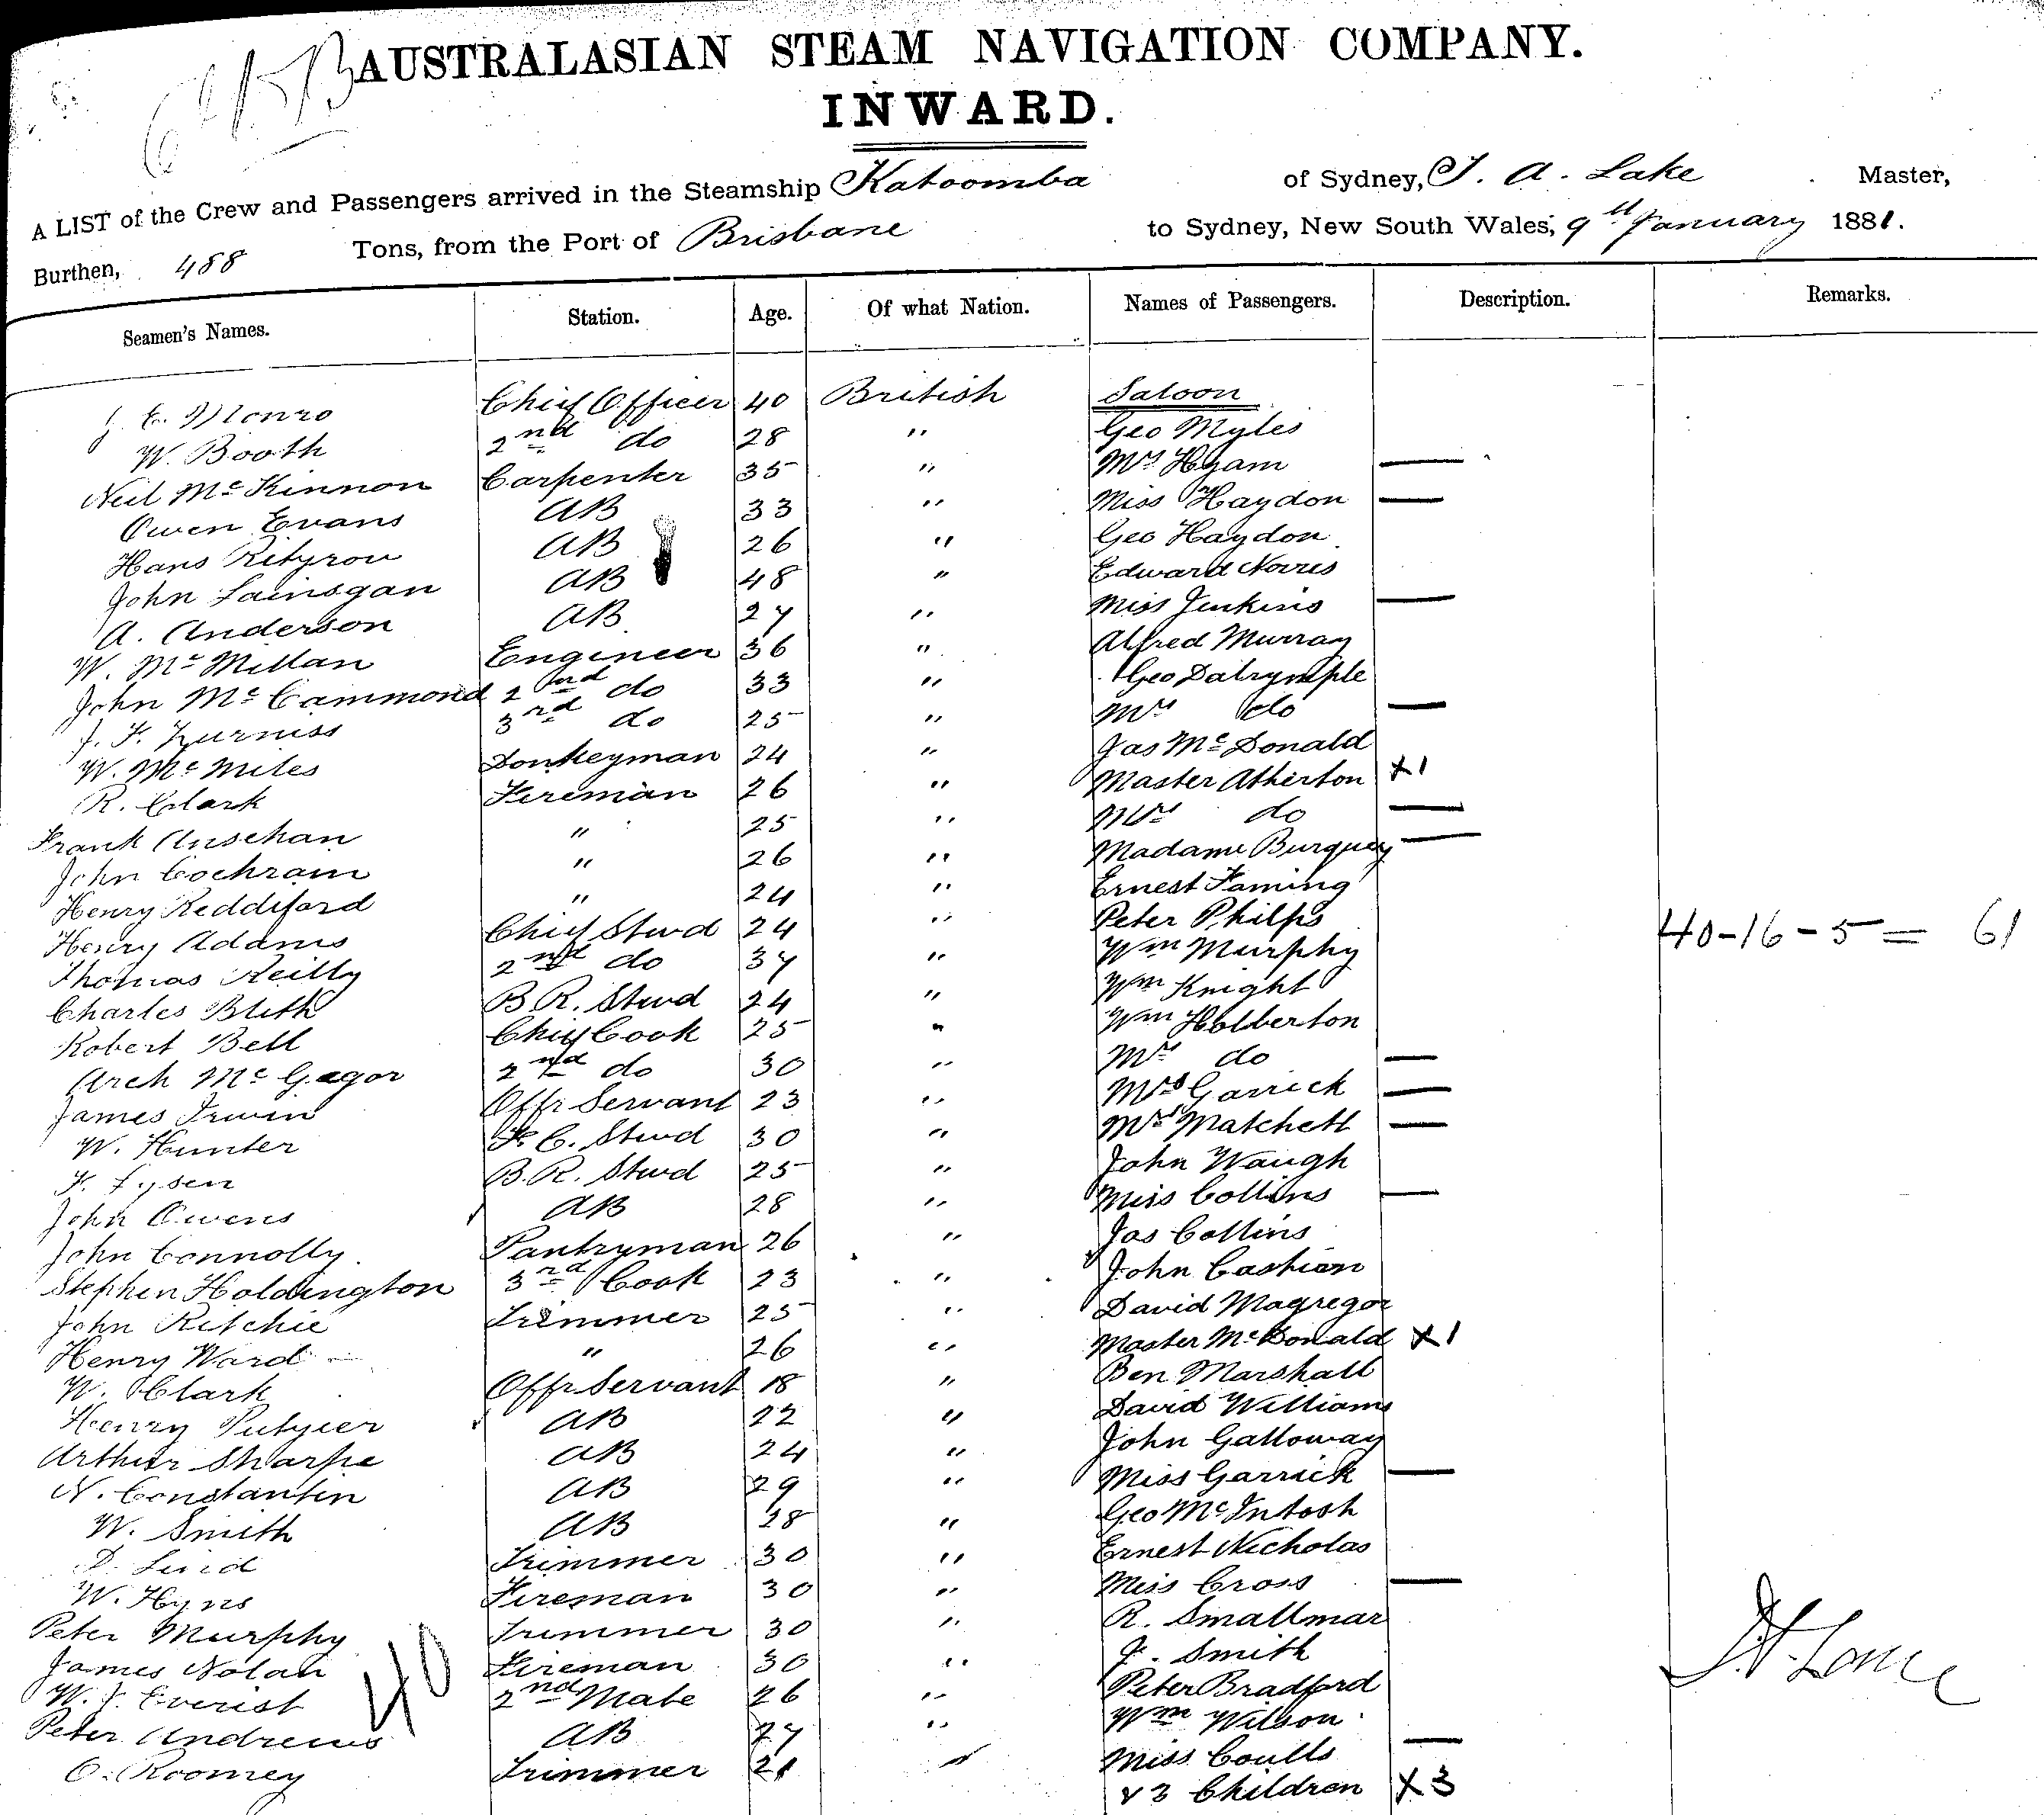 AUSTRALASIAN STEAM NAVIGATION COMPANY.
INWARD.
A LIST of the Crew and Passengers arrived in the Steamship Katoomba of Sydney, J. A. Lake Master,
Burthen, 488 Tons, from the Port of Brisbane to Sydney, New South Wales, 9th January 1881.
Seamen's Names. Station. Age. Of what Nation. Names of Passengers. Description. Remarks.
J. E. Monro Chief Officer 40 British Saloon
W. Booth 2nd do 28 " Geo Myles
Neil McKinnon Carpenter 35 " Mrs Hyam —
Owen Evans AB 33 " Miss Haydon —
Hans AB 26 " Geo Haydon
John AB 48 " Edward Norris
A. Anderson AB 27 " Miss Jenkins —
W. McMillan Engineer 36 " Alfred Murray
John McCammond 2nd do 33 " Geo Dalrymple
J. F. Furniss 3rd do 25 " Mrs do —
W. McMiles Donkeyman 24 " Jas McDonald
R. Clark Fireman 26 " Master Atherton X1
Frank " 25 " Mrs do —
John Cochram " 26 " Madame —
Henry Reddiford " 24 " Ernest Faming
Henry Adams Chief Stwd 24 " Peter Philps
Thomas Reilly 2nd do 37 " Wm Murphy 40-16-5= 61
Charles Blith B.R. Stwd 24 " Wm Knight
Robert Bell Chief Cook 25 " Wm Holberton
Arch McGegor 2nd do 30 " Mrs do —
James Irwin Offr Servant 23 " Mrs Garrick —
W. Hunter F.C. Stwd 30 " Mrs Matchett —
F. Fysen B.R. Stwd 25 " John Waugh
John Owens AB 28 " Miss Collins —
John Connolly Pantryman 26 " Jas Collins
Stephen Holdington 3rd Cook 23 " John Cashion
John Ritchie Trimmer 25 " David Magregor
Henry Ward " 26 " Master McDonald X1
W. Clark Offr Servant 18 " Ben Marshall
Henry AB 22 " David Williams
Arthur Sharpe AB 24 " John Galloway
N. Constantin AB 29 " Miss Garrick —
W. Smith AB 28 " Geo McIntosh
D. Trimmer 30 " Ernest Nicholas
W. Hyns Fireman 30 " Miss Cross —
Peter Murphy Trimmer 30 " R. Smallmar
James Nolan Fireman 30 " J. Smith
W. J. Everist 2nd Mate 26 " Peter Bradford
Peter Andrews AB 27 " Wm Wilson
O. Roomey Trimmer 21 " Miss Coulls —
& 3 Children X3
40